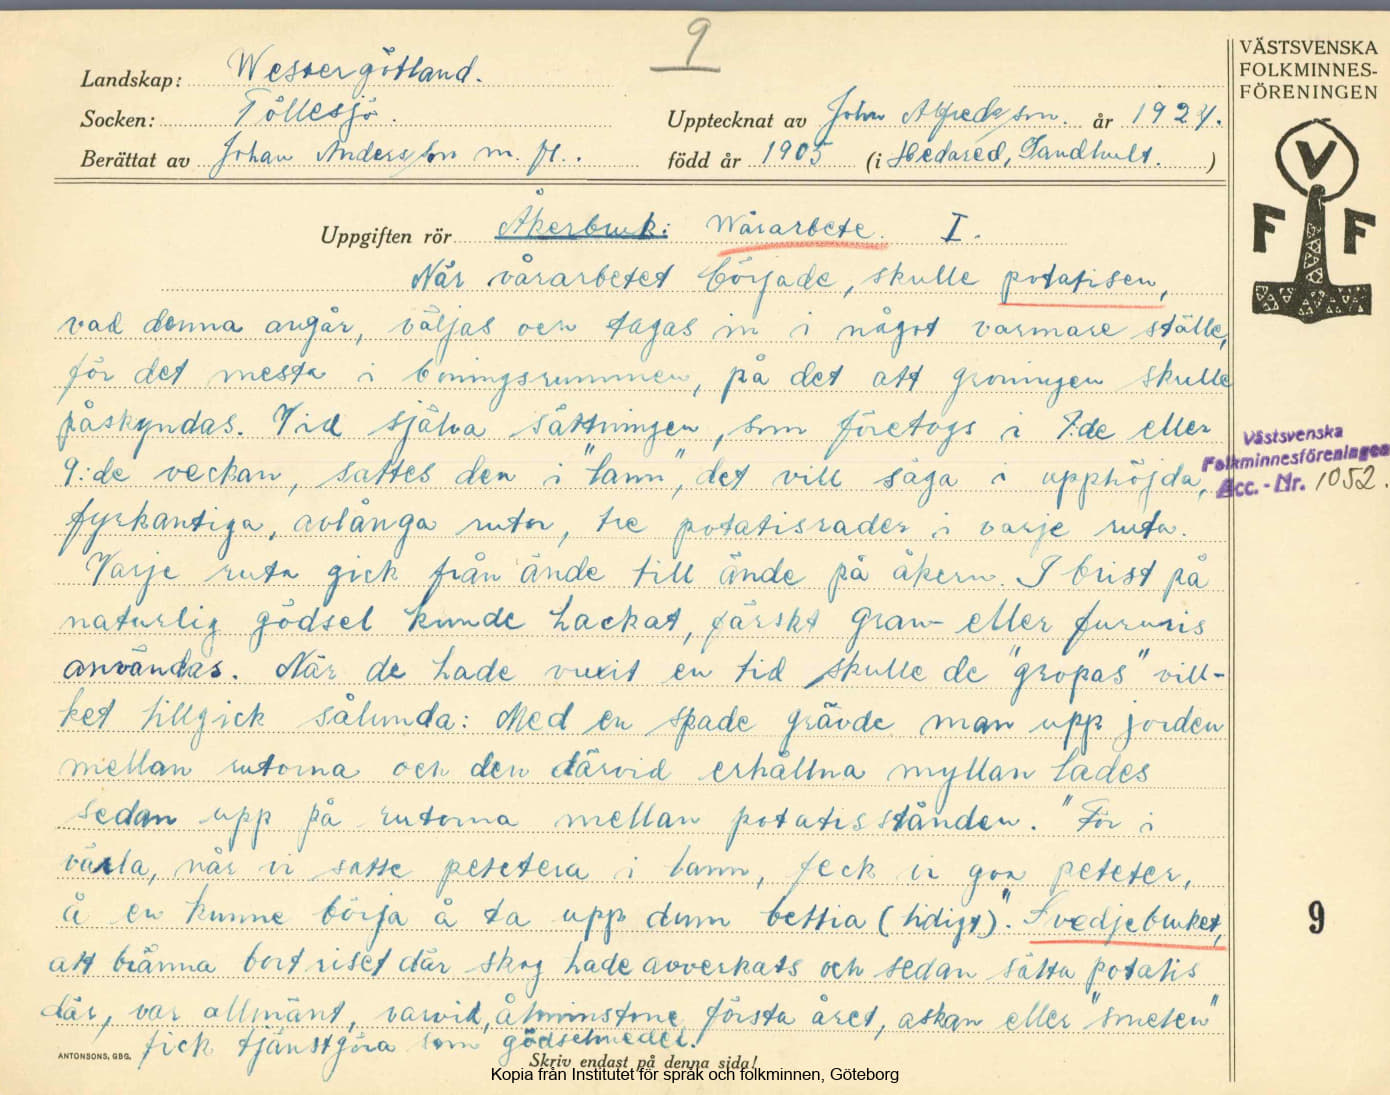 9
VÄSTSVENSKA
FOLKMINNES-
FÖRENINGEN
Landskap: Westergötland.
Socken: Töllesjö.
Upptecknat av John Alfredsson. år 1924.
Berättat av Johan Andersson m. fl..
född år 1905 (i Hedared, Sandhult. )
V
F F
Uppgiften rör Åkerbruk: Wårarbete. I.
När vårarbetet började, skulle potatisen,
vad denna angår, väljas och tagas in i något varmare ställe,
för det mesta i boningsrummen, på det att groningen skulle
påskyndas. Vid själva sättningen, som företogs i 7:de eller
9:de veckan, sattes den i "lann", det vill säga i upphöjda,
fyrkantiga, avlånga rutor, tre potatisrader i varje ruta.
Varje ruta gick från ände till ände på åkern. I brist på
naturlig gödsel kunde hackat, färskt gran- eller fururis
användas. När de hade vuxit en tid skulle de "gropas" vill-
ket tillgick sålunda: Med en spade grävde man upp jorden
mellan rutorna och den därvid erhållna myllan lades
sedan upp på rutorna mellan potatisstånden. "För i
värla, när vi satte petetera i lann, feck vi goa peteter,
å en kunne börja å ta upp dum bettia (tidigt)". Svedjebruket,
att bränna bort riset där skog hade avverkats och sedan sätta potatis
där, var allmänt, varvid, åtminstone första året, askan eller "smeten"
fick tjänstgöra som gödselmedel.
Västsvenska
Folkminnesföreningen
Acc.-Nr. 1052.
9
ANTONSONS, GBG.
Skriv endast på denna sida!
Kopia från Institutet för språk och folkminnen, Göteborg